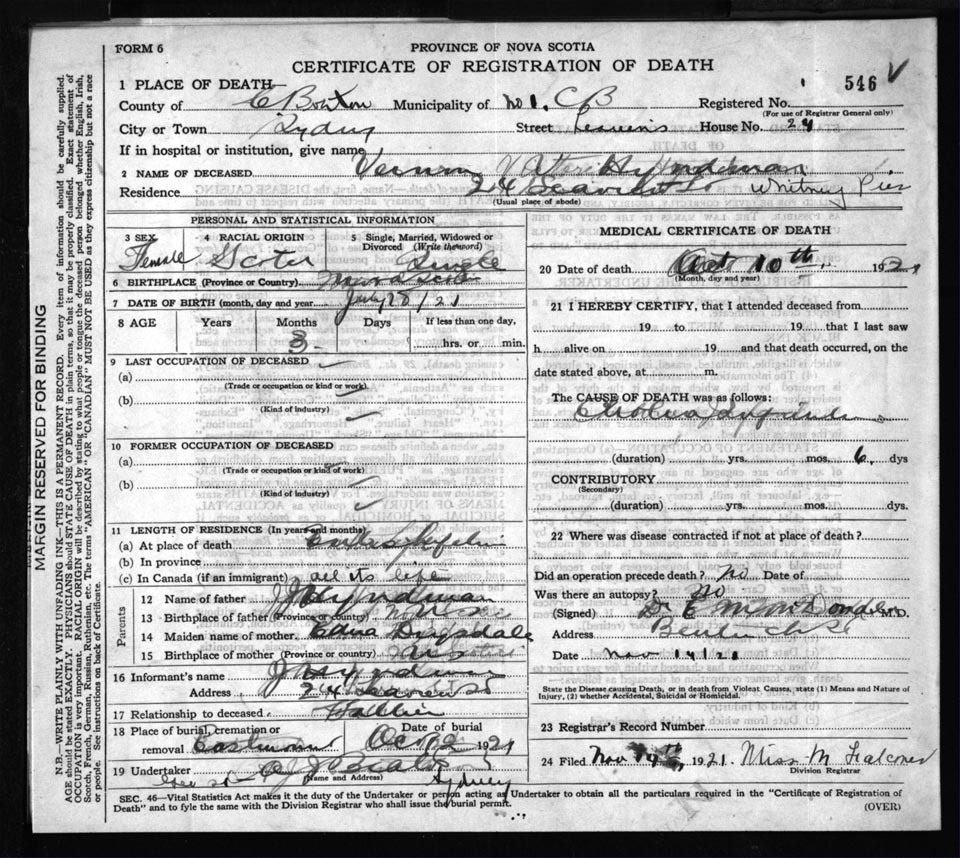 FORM 6
PROVINCE OF NOVA SCOTIA
CERTIFICATE OF REGISTRATION OF DEATH
1 PLACE OF DEATH
546
County of C Breton Municipality of No 1. C B Registered No.
(For use of Registrar General only)
City or Town Sydney Street House No. 24
If in hospital or institution, give name
2 NAME OF DECEASED Vernon Hyndman
Residence 24 St Whitney Pier
(Usual place of abode)
PERSONAL AND STATISTICAL INFORMATION
3 SEX 4 RACIAL ORIGIN 5 Single, Married, Widowed or Divorced (Write the word)
Female Scotch Single
6 BIRTHPLACE (Province or Country)
7 DATE OF BIRTH (month, day and year) July 8/21
8 AGE Years Months Days If less than one day,
3 hrs. or min.
9 LAST OCCUPATION OF DECEASED
(a)
(Trade or occupation or kind of work)
(b)
(Kind of industry)
10 FORMER OCCUPATION OF DECEASED
(a)
(Trade or occupation or kind of work)
(b)
(Kind of industry)
11 LENGTH OF RESIDENCE (In years and months)
(a) At place of death Entire
(b) In province
(c) In Canada (if an immigrant) all its life
Parents
12 Name of father J Hyndman
13 Birthplace of father (Province or country)
14 Maiden name of mother Edna
15 Birthplace of mother (Province or country)
16 Informant's name J Hyndman
Address 24 St
17 Relationship to deceased Father
18 Place of burial, cremation or removal Date of burial
Eastmount Oct 12 1921
19 Undertaker A J Beaton
(Name and Address)
Sydney
MEDICAL CERTIFICATE OF DEATH
20 Date of death Oct 10th 1921
(Month, day and year)
21 I HEREBY CERTIFY, that I attended deceased from
19 to 19 that I last saw
h alive on 19 and that death occurred, on the
date stated above, at m.
The CAUSE OF DEATH was as follows:
Cholera
(duration) yrs. mos. 6 dys
CONTRIBUTORY
(Secondary)
(duration) yrs. mos. dys.
22 Where was disease contracted if not at place of death?
Did an operation precede death? No Date of
Was there an autopsy? No
(Signed) Dr E M McDonald M.D.
Address
Date Nov 14/21
State the Disease causing Death, or in death from Violent Causes, state (1) Means and Nature of
Injury, (2) whether Accidental, Suicidal or Homicidal.
23 Registrar's Record Number
24 Filed Nov 14th 1921. Miss M Falconer
Division Registrar
SEC. 46—Vital Statistics Act makes it the duty of the Undertaker or person acting as Undertaker to obtain all the particulars required in the "Certificate of Registration of
Death" and to fyle the same with the Division Registrar who shall issue the burial permit.
(OVER)
MARGIN RESERVED FOR BINDING
N.B.—WRITE PLAINLY WITH UNFADING INK—THIS IS A PERMANENT RECORD. Every item of information should be carefully supplied.
AGE should be stated EXACTLY. PHYSICIANS should STATE CAUSE OF DEATH in plain terms, so that it may be properly classified. Exact statement of
OCCUPATION is very important. RACIAL ORIGIN will be described by stating to what people or tongue the deceased person belonged whether English, Irish,
Scotch, French, German, Russian, Ruthenian, etc. The terms "AMERICAN" OR "CANADIAN" MUST NOT BE USED as they express citizenship but not a race
or people. See instructions on back of Certificate.